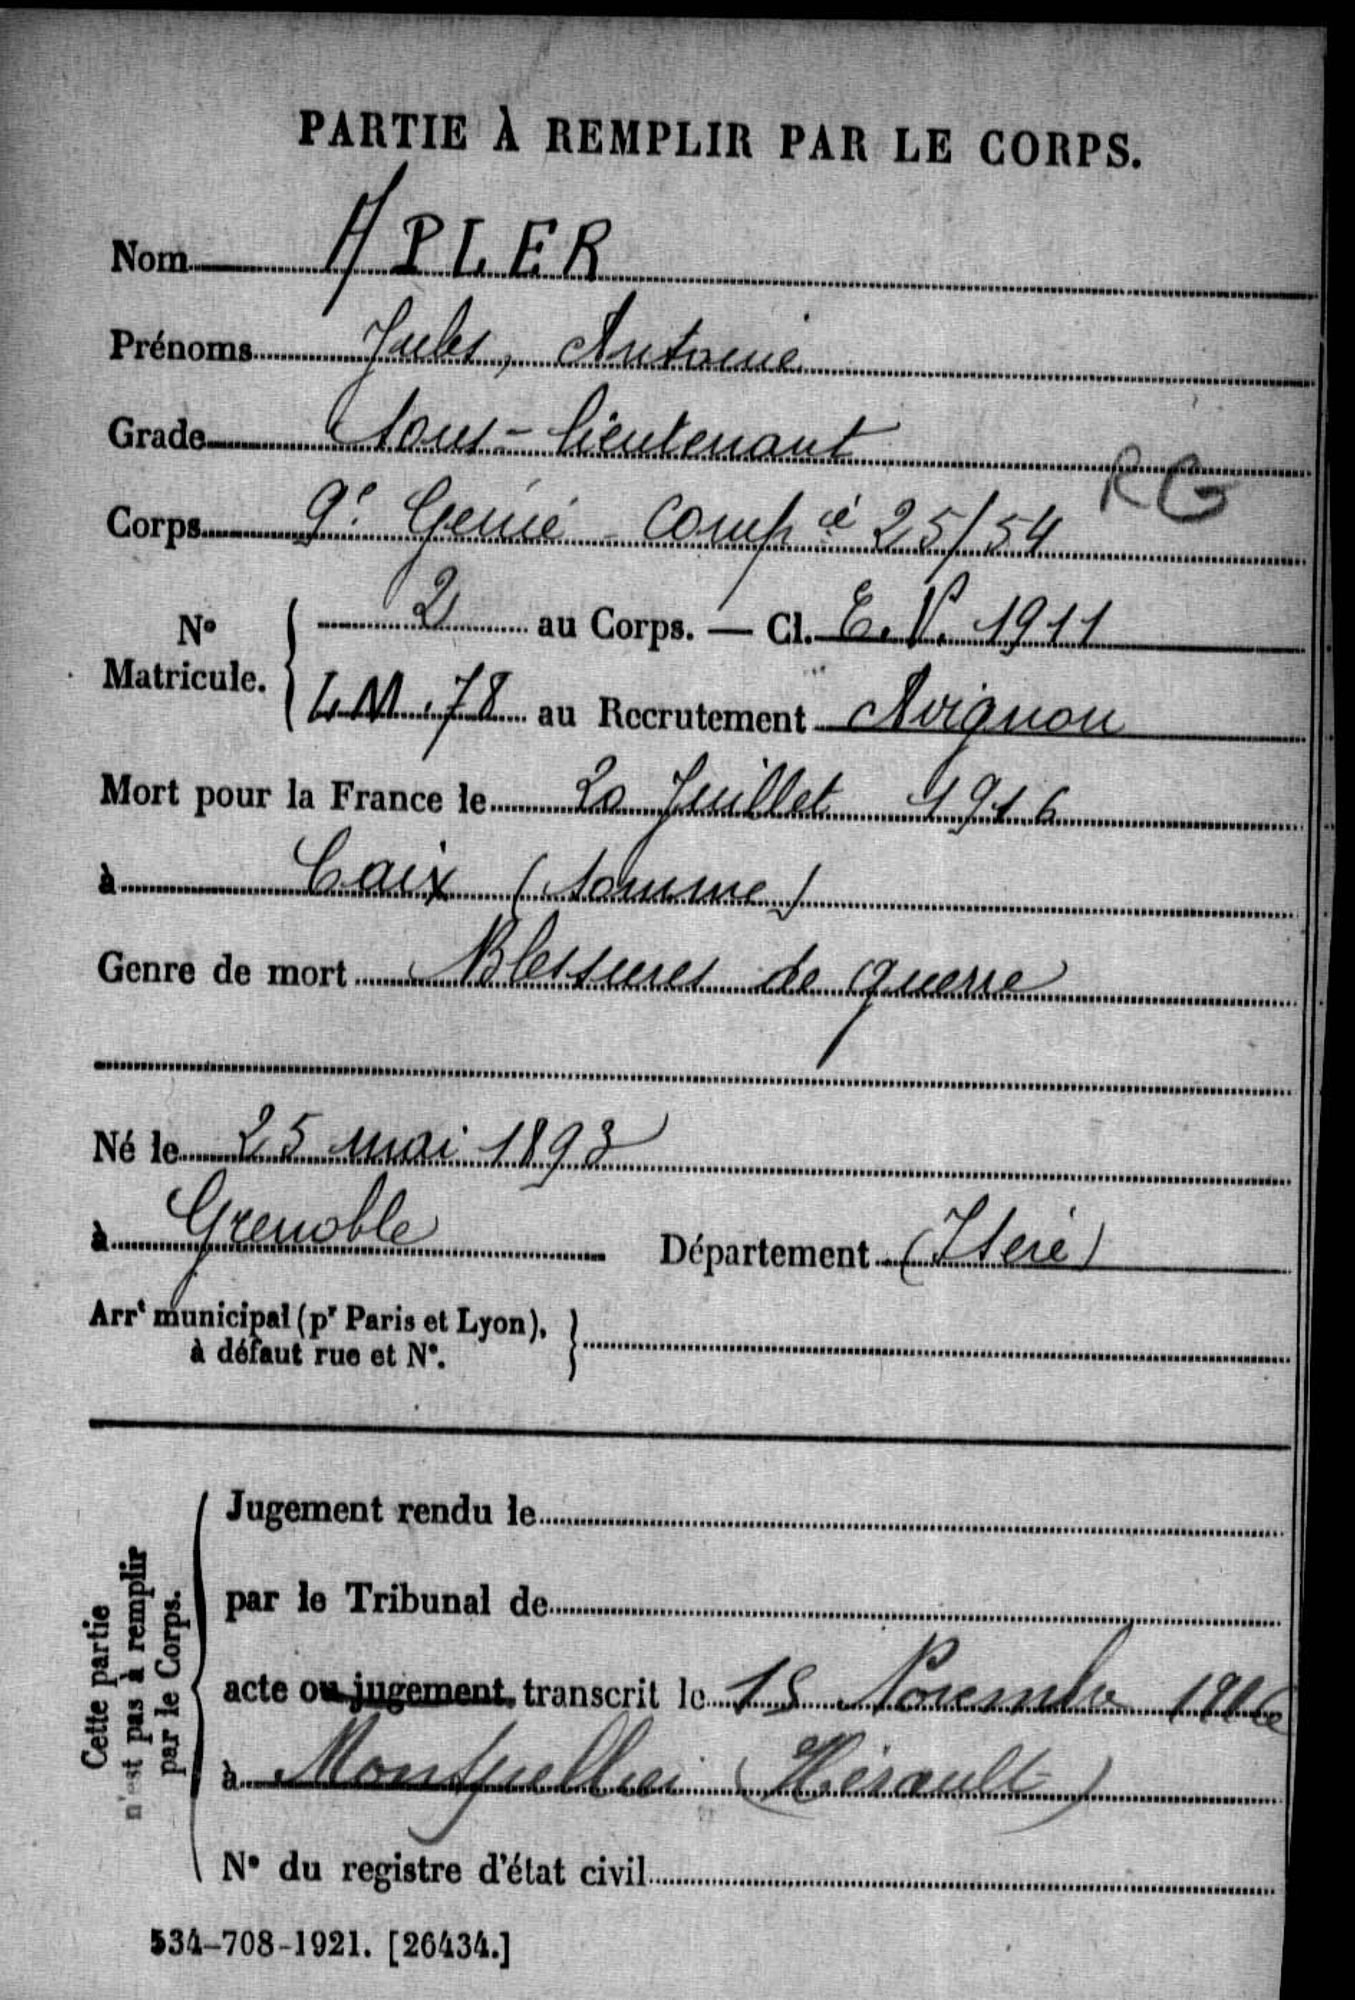 PARTIE À REMPLIR PAR LE CORPS.
Nom APLER
Prénoms Jules, Antoine
Grade Sous-lieutenant
RG
Corps 9e Génie - Compie 25/54
No Matricule. { 2 au Corps. — Cl. E.V. 1911
L.M. 78 au Recrutement Avignon
Mort pour la France le 20 Juillet 1916
à Caix (Somme)
Genre de mort Blessures de guerre
Né le 25 mai 1893
à Grenoble Département (Isère)
Arrt municipal (pr Paris et Lyon), }
à défaut rue et No.
Cette partie
n'est pas à remplir
par le Corps.
Jugement rendu le
par le Tribunal de
acte ou jugement transcrit le 15 Novembre 1916
à Montpellier (Hérault)
No du registre d'état civil
534-708-1921. [26434.]